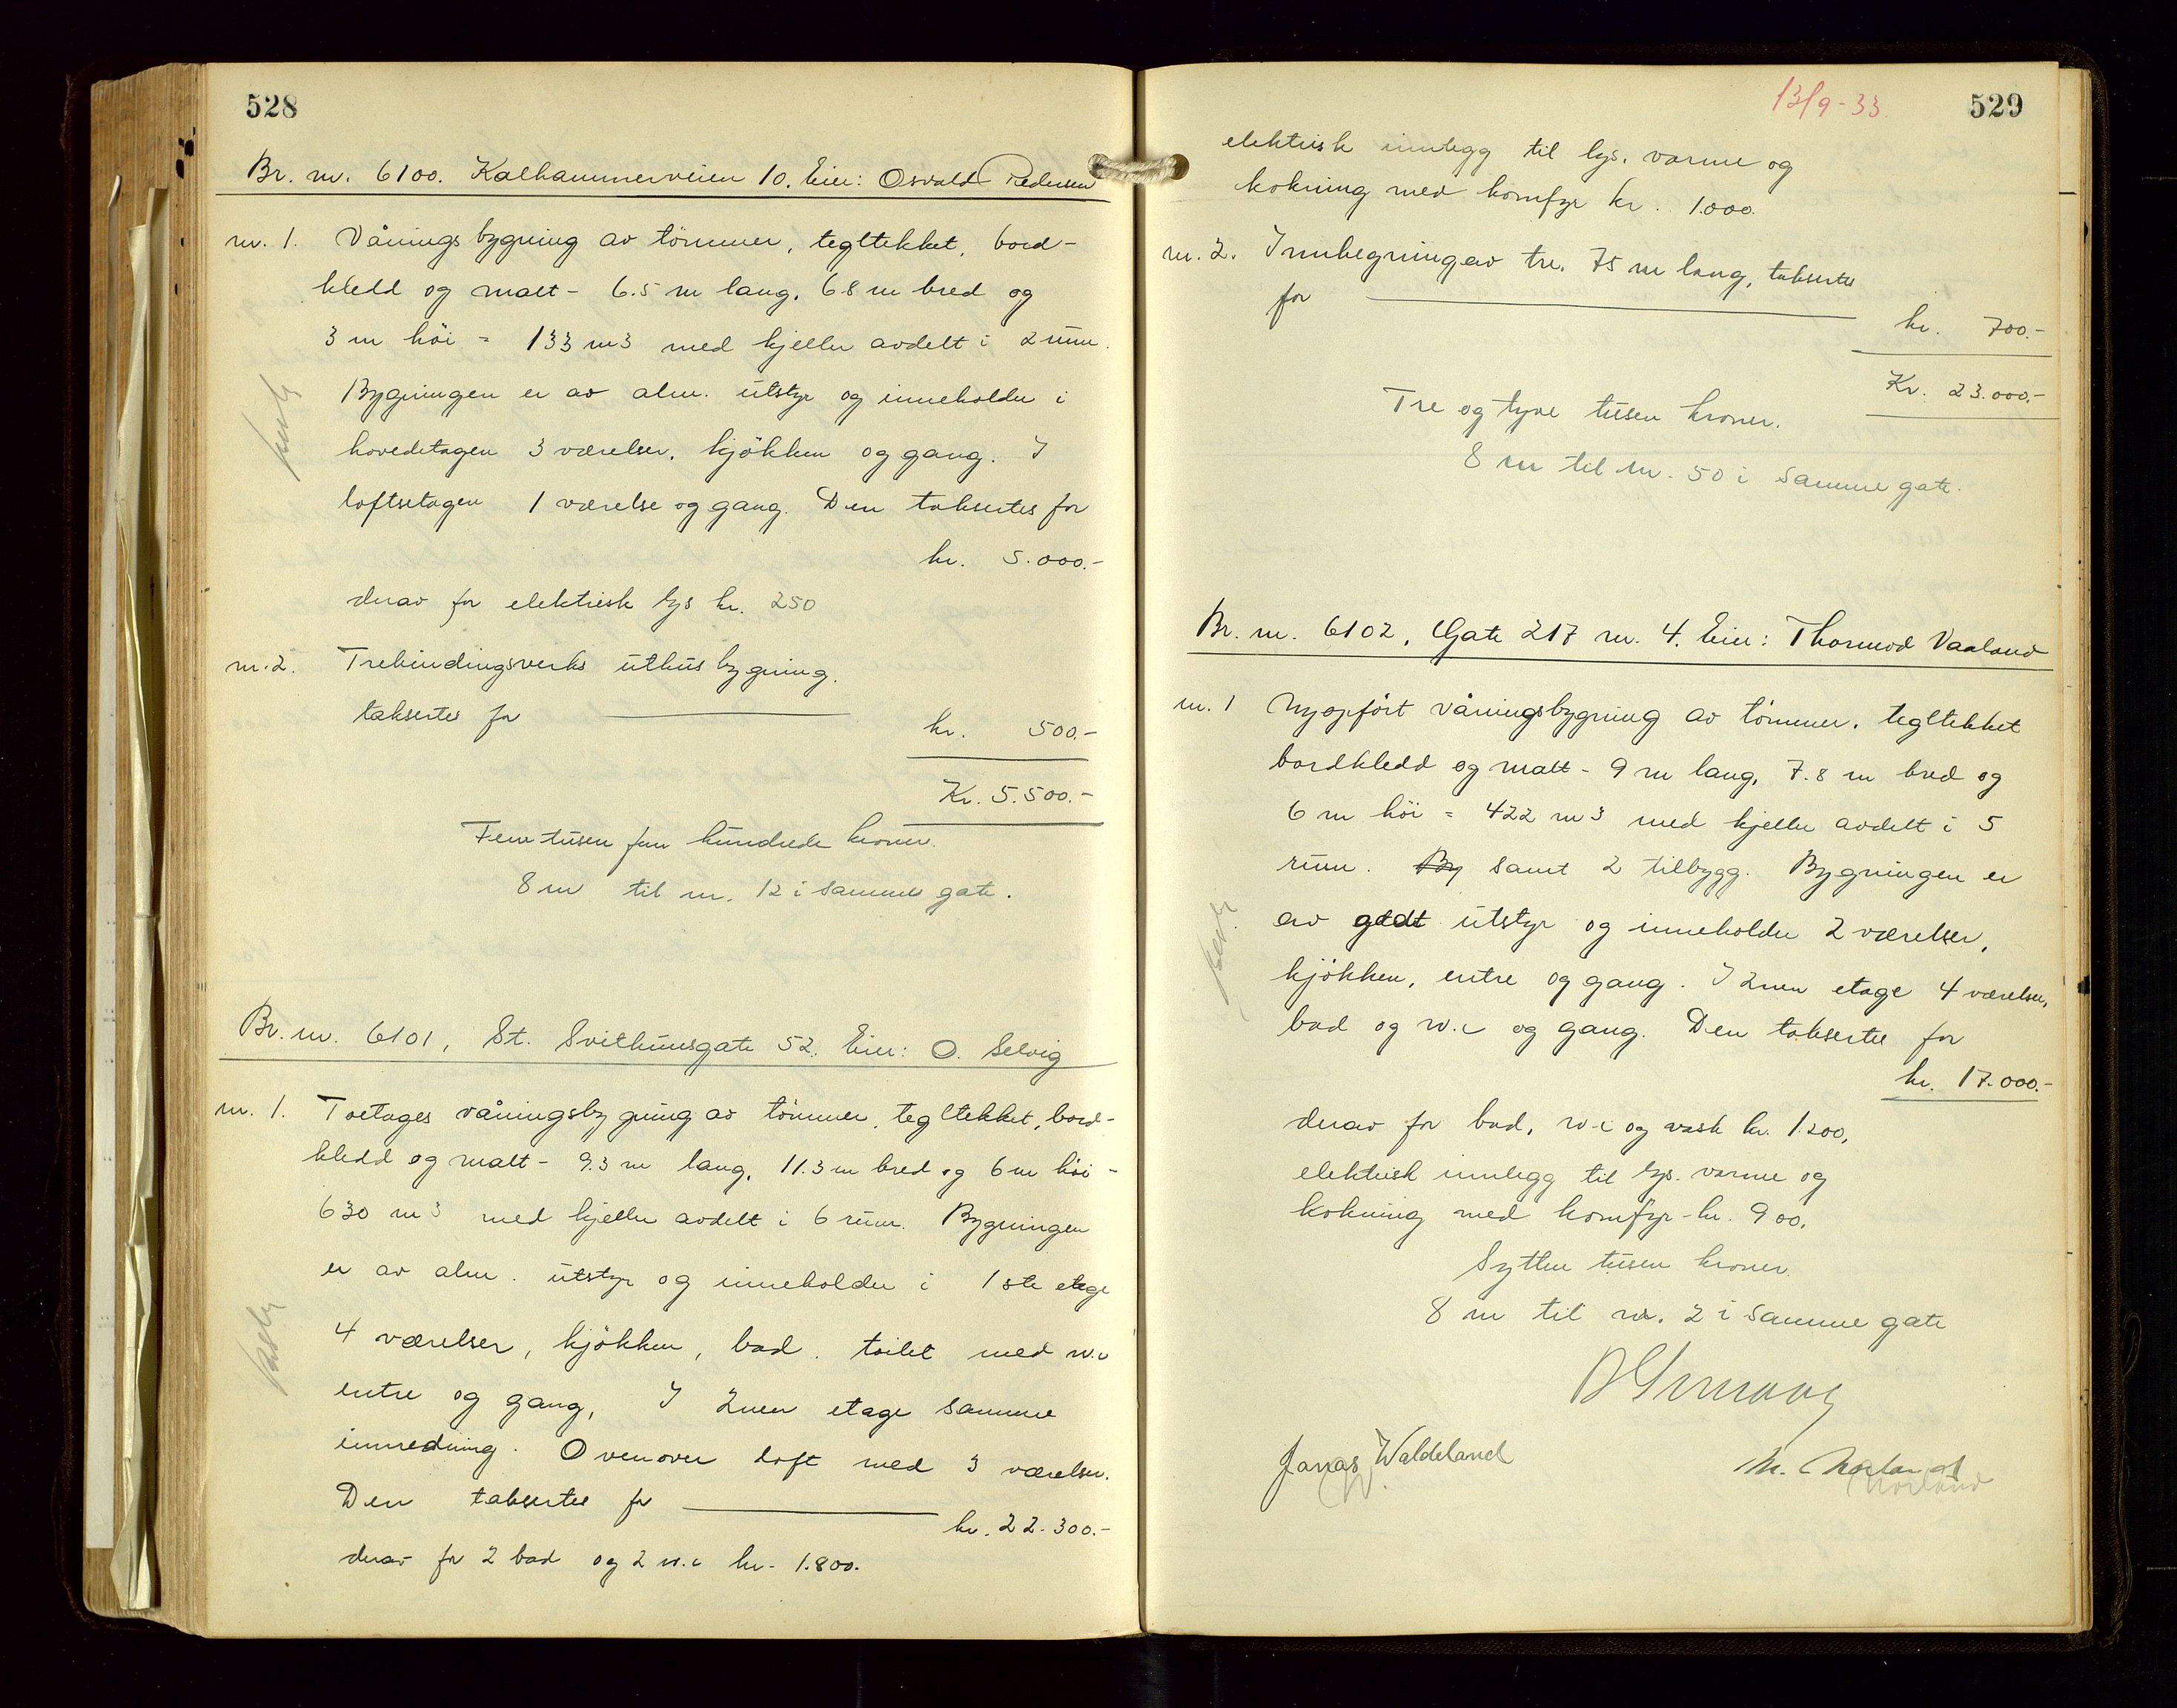 528
Br. nr. 6100. Kalhammerveien 10. Eier: Osvald Pedersen
nr. 1. Våningsbygning av tömmer, tegltekket, bord-
kledd og malt - 6.5 m lang, 6.8 m bred og
3 m höi = 133 m3 med kjeller avdelt i 2 rum.
Bygningen er av alm. utstyr og inneholder i
hovedetagen 3 værelser, kjökken og gang. I
loftsetagen 1 værelse og gang. Den takseres for
kr. 5.000.-
derav for elektrisk lys kr. 250
nr. 2. Trebindingsverks uthusbygning.
takseres for
kr. 500.-
Kr. 5.500.-
Fem tusen fem hundrede kroner.
8 m til nr. 12 i samme gate.
Br. nr. 6101, St. Svithunsgate 52. Eier: O. Selvig
nr. 1. Toetages våningsbygning av tömmer, tegltekket, bord-
kledd og malt - 9.3 m lang, 11.3 m bred og 6 m höi -
630 m3 med kjeller avdelt i 6 rum. Bygningen
er av alm. utstyr og inneholder i 1ste etage
4 værelser, kjökken, bad. toilet med w.c
entre og gang, I 2nen etage samme
innredning. Ovenover loft med 3 værelser.
Den takseres for
kr. 22.300.-
derav for 2 bad og 2 w.c kr. 1.800.
13/9-33.
529
elektrisk innlegg til lys, varme og
kokning med komfyr kr. 1.000.
nr. 2. Innhegning av tre, 75 m lang, takseres
for
kr. 700.-
Kr. 23.000.-
Tre og tyve tusen kroner.
8 m til nr. 50 i samme gate.
Br. nr. 6102, Gate 217 nr. 4. Eier: Thormod Vaaland
nr. 1 Nyopfört våningsbygning av tömmer, tegltekket
bordkledd og malt - 9 m lang, 7.8 m bred og
6 m höi = 422 m3 med kjeller avdelt i 5
rum. By samt 2 tilbygg. Bygningen er
av godt utstyr og inneholder 2 værelser,
kjökken, entre og gang. I 2nen etage 4 værelser,
bad og w.c og gang. Den takseres for
kr. 17.000.-
derav for bad, w.c og vask kr. 1.200,
elektrisk innlegg til lys, varme og
kokning med komfyr - kr. 900.
Sytten tusen kroner.
8 m til nr. 2 i samme gate
Jonas Waldeland
W.
Norland